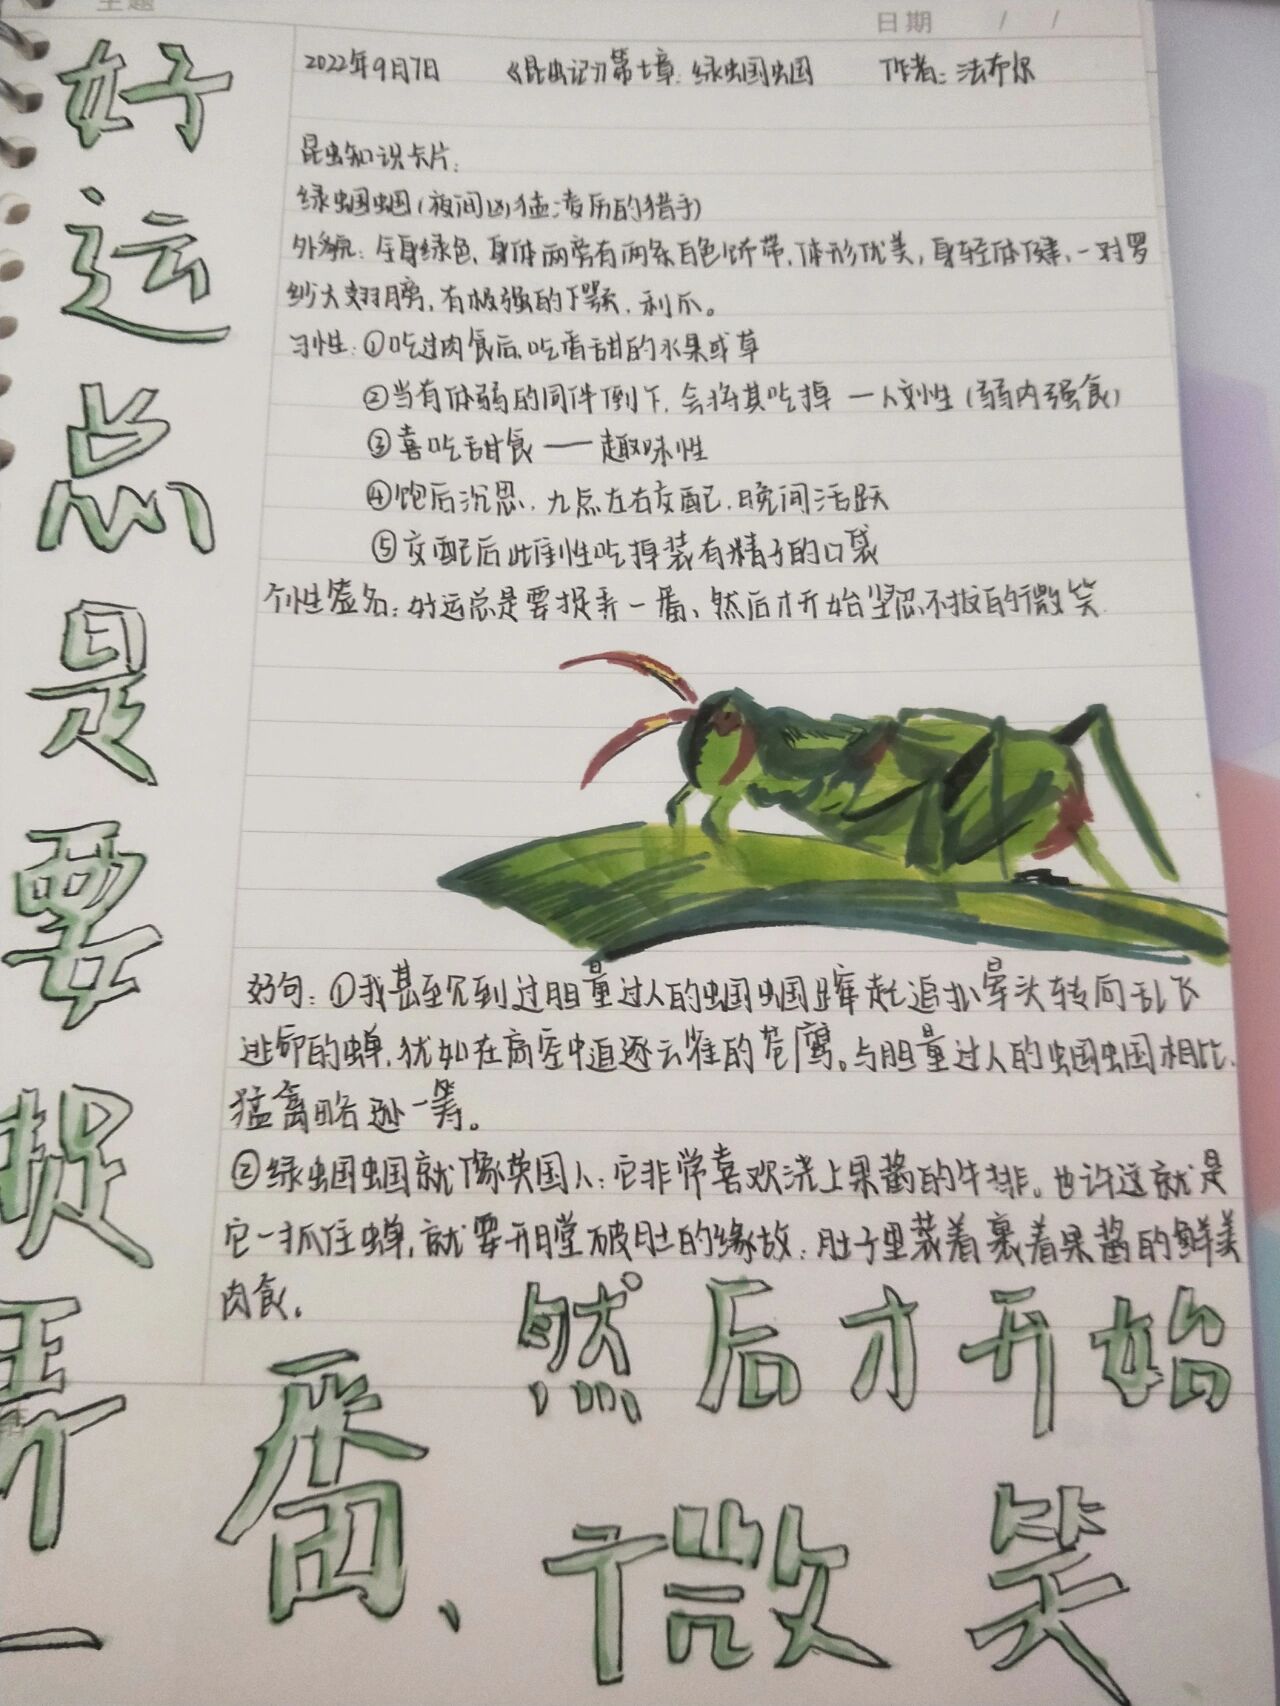 主题
日期 / /
2022年9月7日 《昆虫记》第七章:绿蝈蝈 作者:法布尔
昆虫知识卡片:
绿蝈蝈(夜间凶猛凌厉的猎手)
外貌:全身绿色、身体两旁有两条白色饰带,体形优美,身轻体健、一对罗
纱大翅膀,有极强的下颚、利爪。
习性:①吃过肉食后,吃香甜的水果或草
②当有体弱的同伴倒下,会将其吃掉 一人对性(弱内强食)
③喜吃甜食——趣味性
④饱后沉思,九点左右交配,晚间活跃
⑤交配后雌性吃掉装有精子的口袋
个性签名:好运总是要捉弄一番、然后才开始坚忍不拔的微笑
好句:①我甚至见到过胆量过人的蝈蝈蹿起追扑晕头转向乱飞
逃命的蝉,犹如在高空中追逐云雀的苍鹰。与胆量过人的蝈蝈相比,
猛禽略逊一筹。
②绿蝈蝈就像英国人:它非常喜欢浇上果酱的牛排。也许这就是
它一抓住蝉,就要开膛破肚的缘故:肚子里装着裹着果酱的鲜美
肉食。
好运总是要捉弄一
番、
然后才开始
微笑